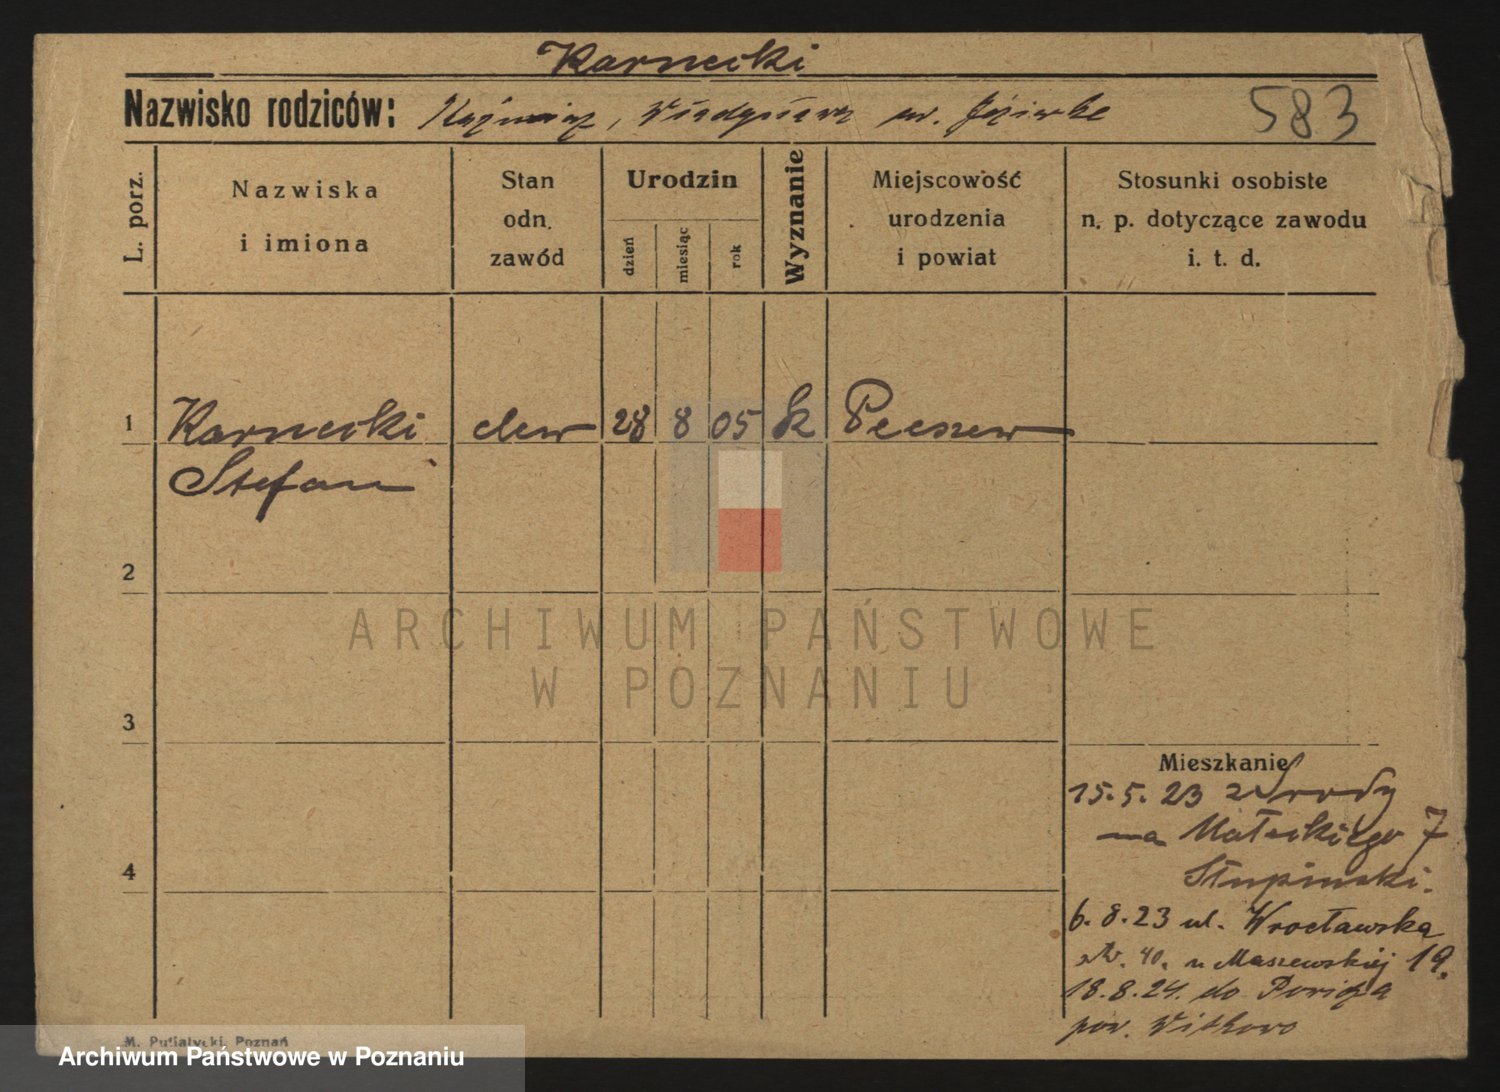 Karnecki
Nazwisko rodziców: Kaźmierz, ur. 583
L. porz.
Nazwiska
i imiona
Stan
odn.
zawód
Urodzin
dzień
miesiąc
rok
Wyznanie
Miejscowość
urodzenia
i powiat
Stosunki osobiste
n. p. dotyczące zawodu
i. t. d.
1 Karnecki 28 8 05 k
Stefan
2
3
4
ARCHIWUM PAŃSTWOWE
W POZNANIU
Mieszkanie
15.5.23 z Środy
na Małeckiego 7
Słupinski.
6.8.23 ul. Wrocławska
40. u Maszewskiej 19.
18.8.24. do
pow. Witkowo
M. Putiatycki, Poznań
Archiwum Państwowe w Poznaniu